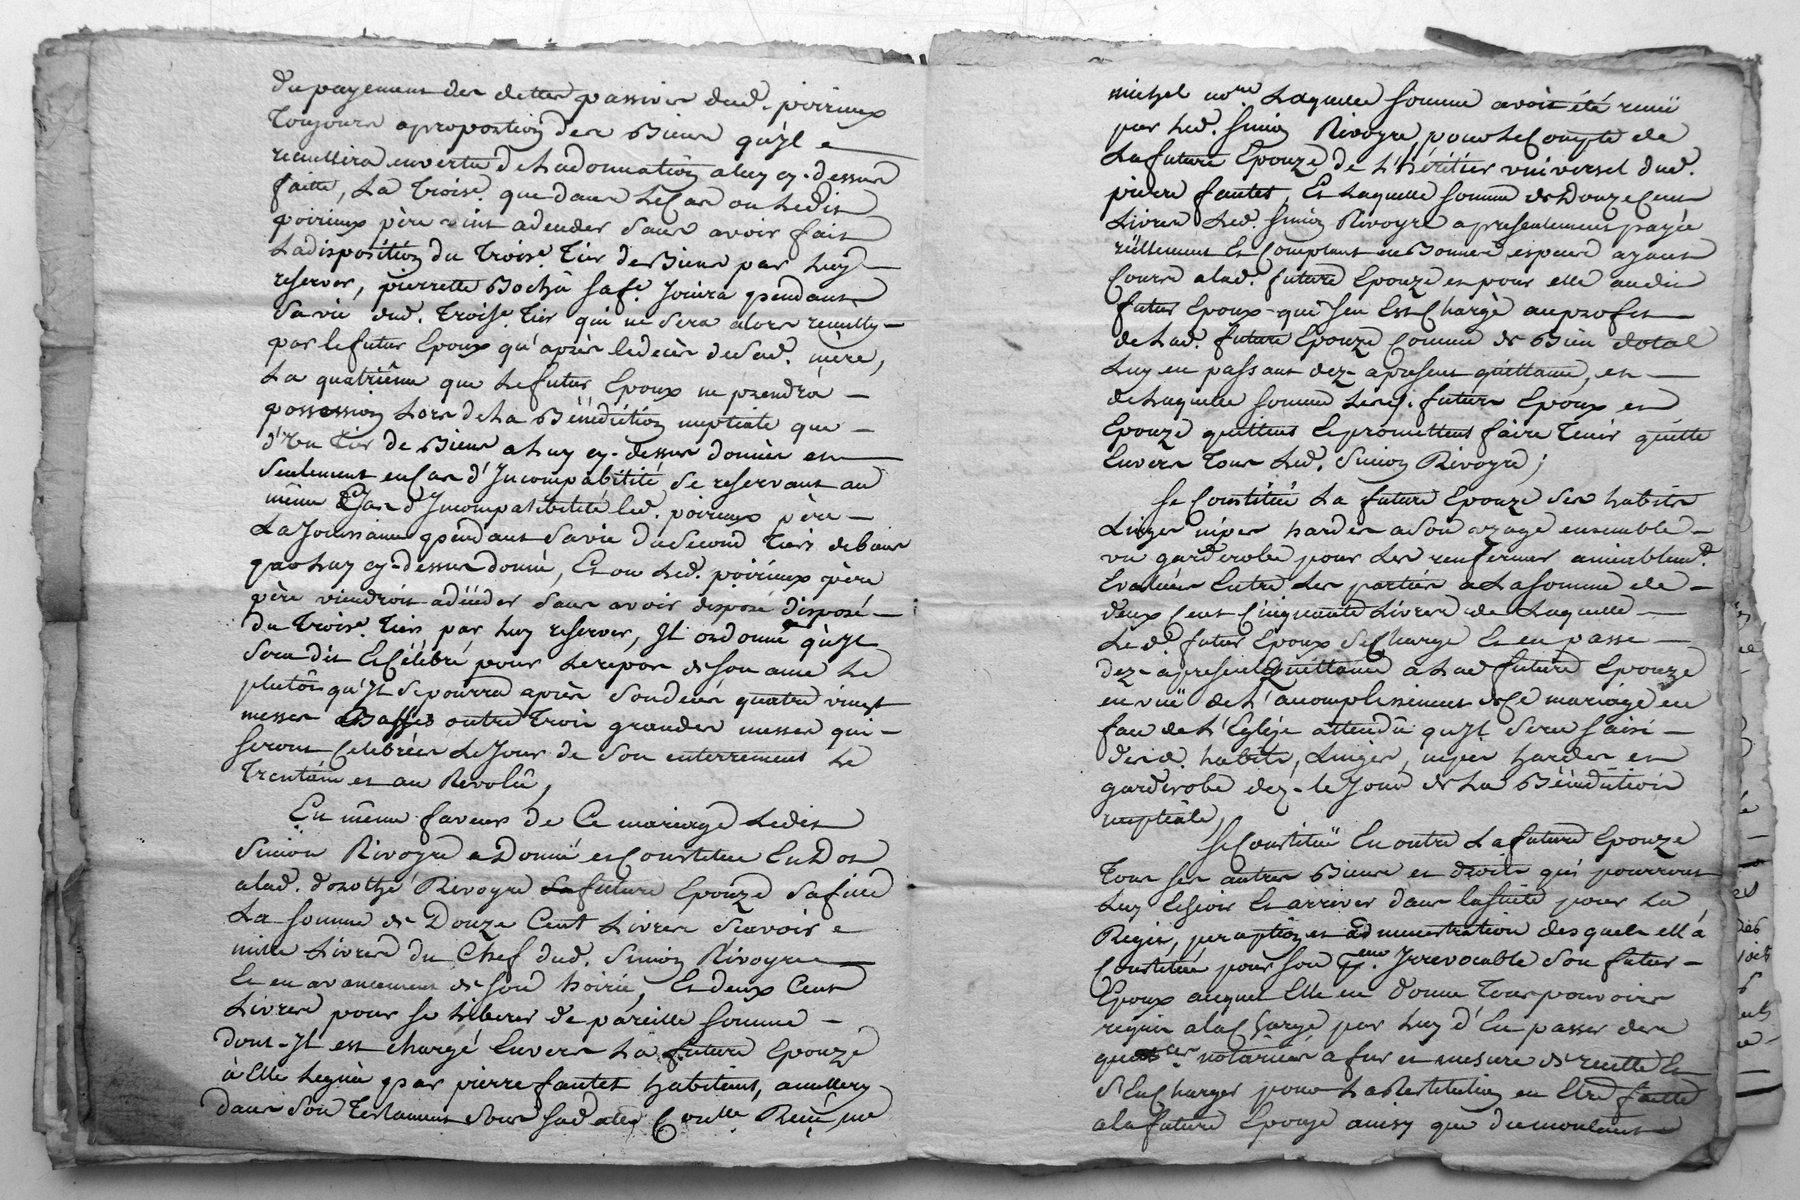 du payement des dettes passives dud. poirieux
Toujours aproportion des Biens qu'jl
recuillira envertu de Ladonnation aluy cy-dessus
faitte, La Troise. que dans LeCas ou Ledit
poirieux père vint adeceder Sans avoir fait
Ladisposition du Troise. Tier de Biens par Luy
reserver, pierrette Bochu Safe. Jouira pendant
Savie dud. Troise. Tier qui ne Sera alors recuilly
par lefutur Epoux qu'après ledecès deSad. mère,
La quatrième que Lefutur Epoux ne prendra
possession Lors deLa Bénédiction nuptiale que
d'un Tier de Biens a Luy cy-dessus donnés et
Seulement enCas d'Jncompabitité Se reservant au
même Cas d'Jncompatibitité led. poirieux père
LaJouissance pendant Savie duSecond Tiers debiens
par Luy cy-dessus donné, Et ou Led. poirieux père
père viendroit adécéder Sans avoir disposé disposé
du Troise. Tiers par Luy reserver, Jl ordonne qu'Jl
Sera dit et Célébré pour Lerepos de Son ame Le
plutôt qu'Jl Sepourra après Sondecès quatre vingt
messes Basses outre Trois grandes messes qui
Seront Celebrées LeJour de Son enterrement Le
Trentain et au Revolû,
En même faveur de Ce mariage Ledit
Simon Rivoyre a Donné et Constitué EnDot
alad. dorothé Rivoyre Lafuture Epouze Safille
La Somme de Douze Cent Livres Scavoir
mille Livres du Chef dud. Simon Rivoyre
Et en avancement de Son hoirie, Et deux Cent
Livres pour Se Liberer de pareille Somme
dont-Jl est chargé Envers La future Epouze
à Elle Leguée par pierre fautet habitant, a
dans Son Testament Sous Sad. datte Reçu, me
michel nore. Laquelle Somme avoit été remi
par Led. Simon Rivoyre pour LeCompte de
Lafuture Epouze de L'Héritier universel dud.
pierre fautet, Et Laquelle Somme de Douze Cent
Livres Led. Simon Rivoyre apresentement payée
réellement Et Comptant en Bonnes especes ayant
Cours alad. future Epouze et pour elle audit
futur Epoux qui Sen Est Chargé auprofet
deLad. future Epouze Comme de Bien dotal
Luy en passant dez-apresent quittance, et
de Laquelle Somme Lesd. futurs Epoux et
Epouze quittent et promettent faire Tenir quitte
Envers Tous Led. Simon Rivoyre;
Se Constitue La future Epouze Ses habits
Linges nipes hardes aSon uzage ensemble
un garderobe pour Les renfermer amiablemt.
Evalués Entre Les parties a LaSomme de
deux Cent Cinquante Livres de Laquelle
Led. futur Epoux SeCharge Et en passe
dez-apresent Quittance a Lad future Epouze
en vüe de L'acomplissement de Ce mariage en
face de L'Eglize attendû qu'Jl Sera Saisi
desd. habits, Linges, nipes hardes et
garderobe dez-leJour de La Bénédiction
nuptiale,
Se Constitüe En outre Lafuture Epouze
Tous Ses autres Biens et droits qui pourront
Luy Echeoir Et arriver dans lasuite pour La
Regie, perception et administration desquels ell'a
Constitué pour Son Irrevocable Son futur
Epoux auquel Elle en donne Tous pouvoirs
requis alaCharge par Luy d'En passer des
quitces. notariées a fur et mesure de recette Et
S'EnCharger pour LaRestitution en Etre faitte
alafuture Epouze ainsy que dumontant